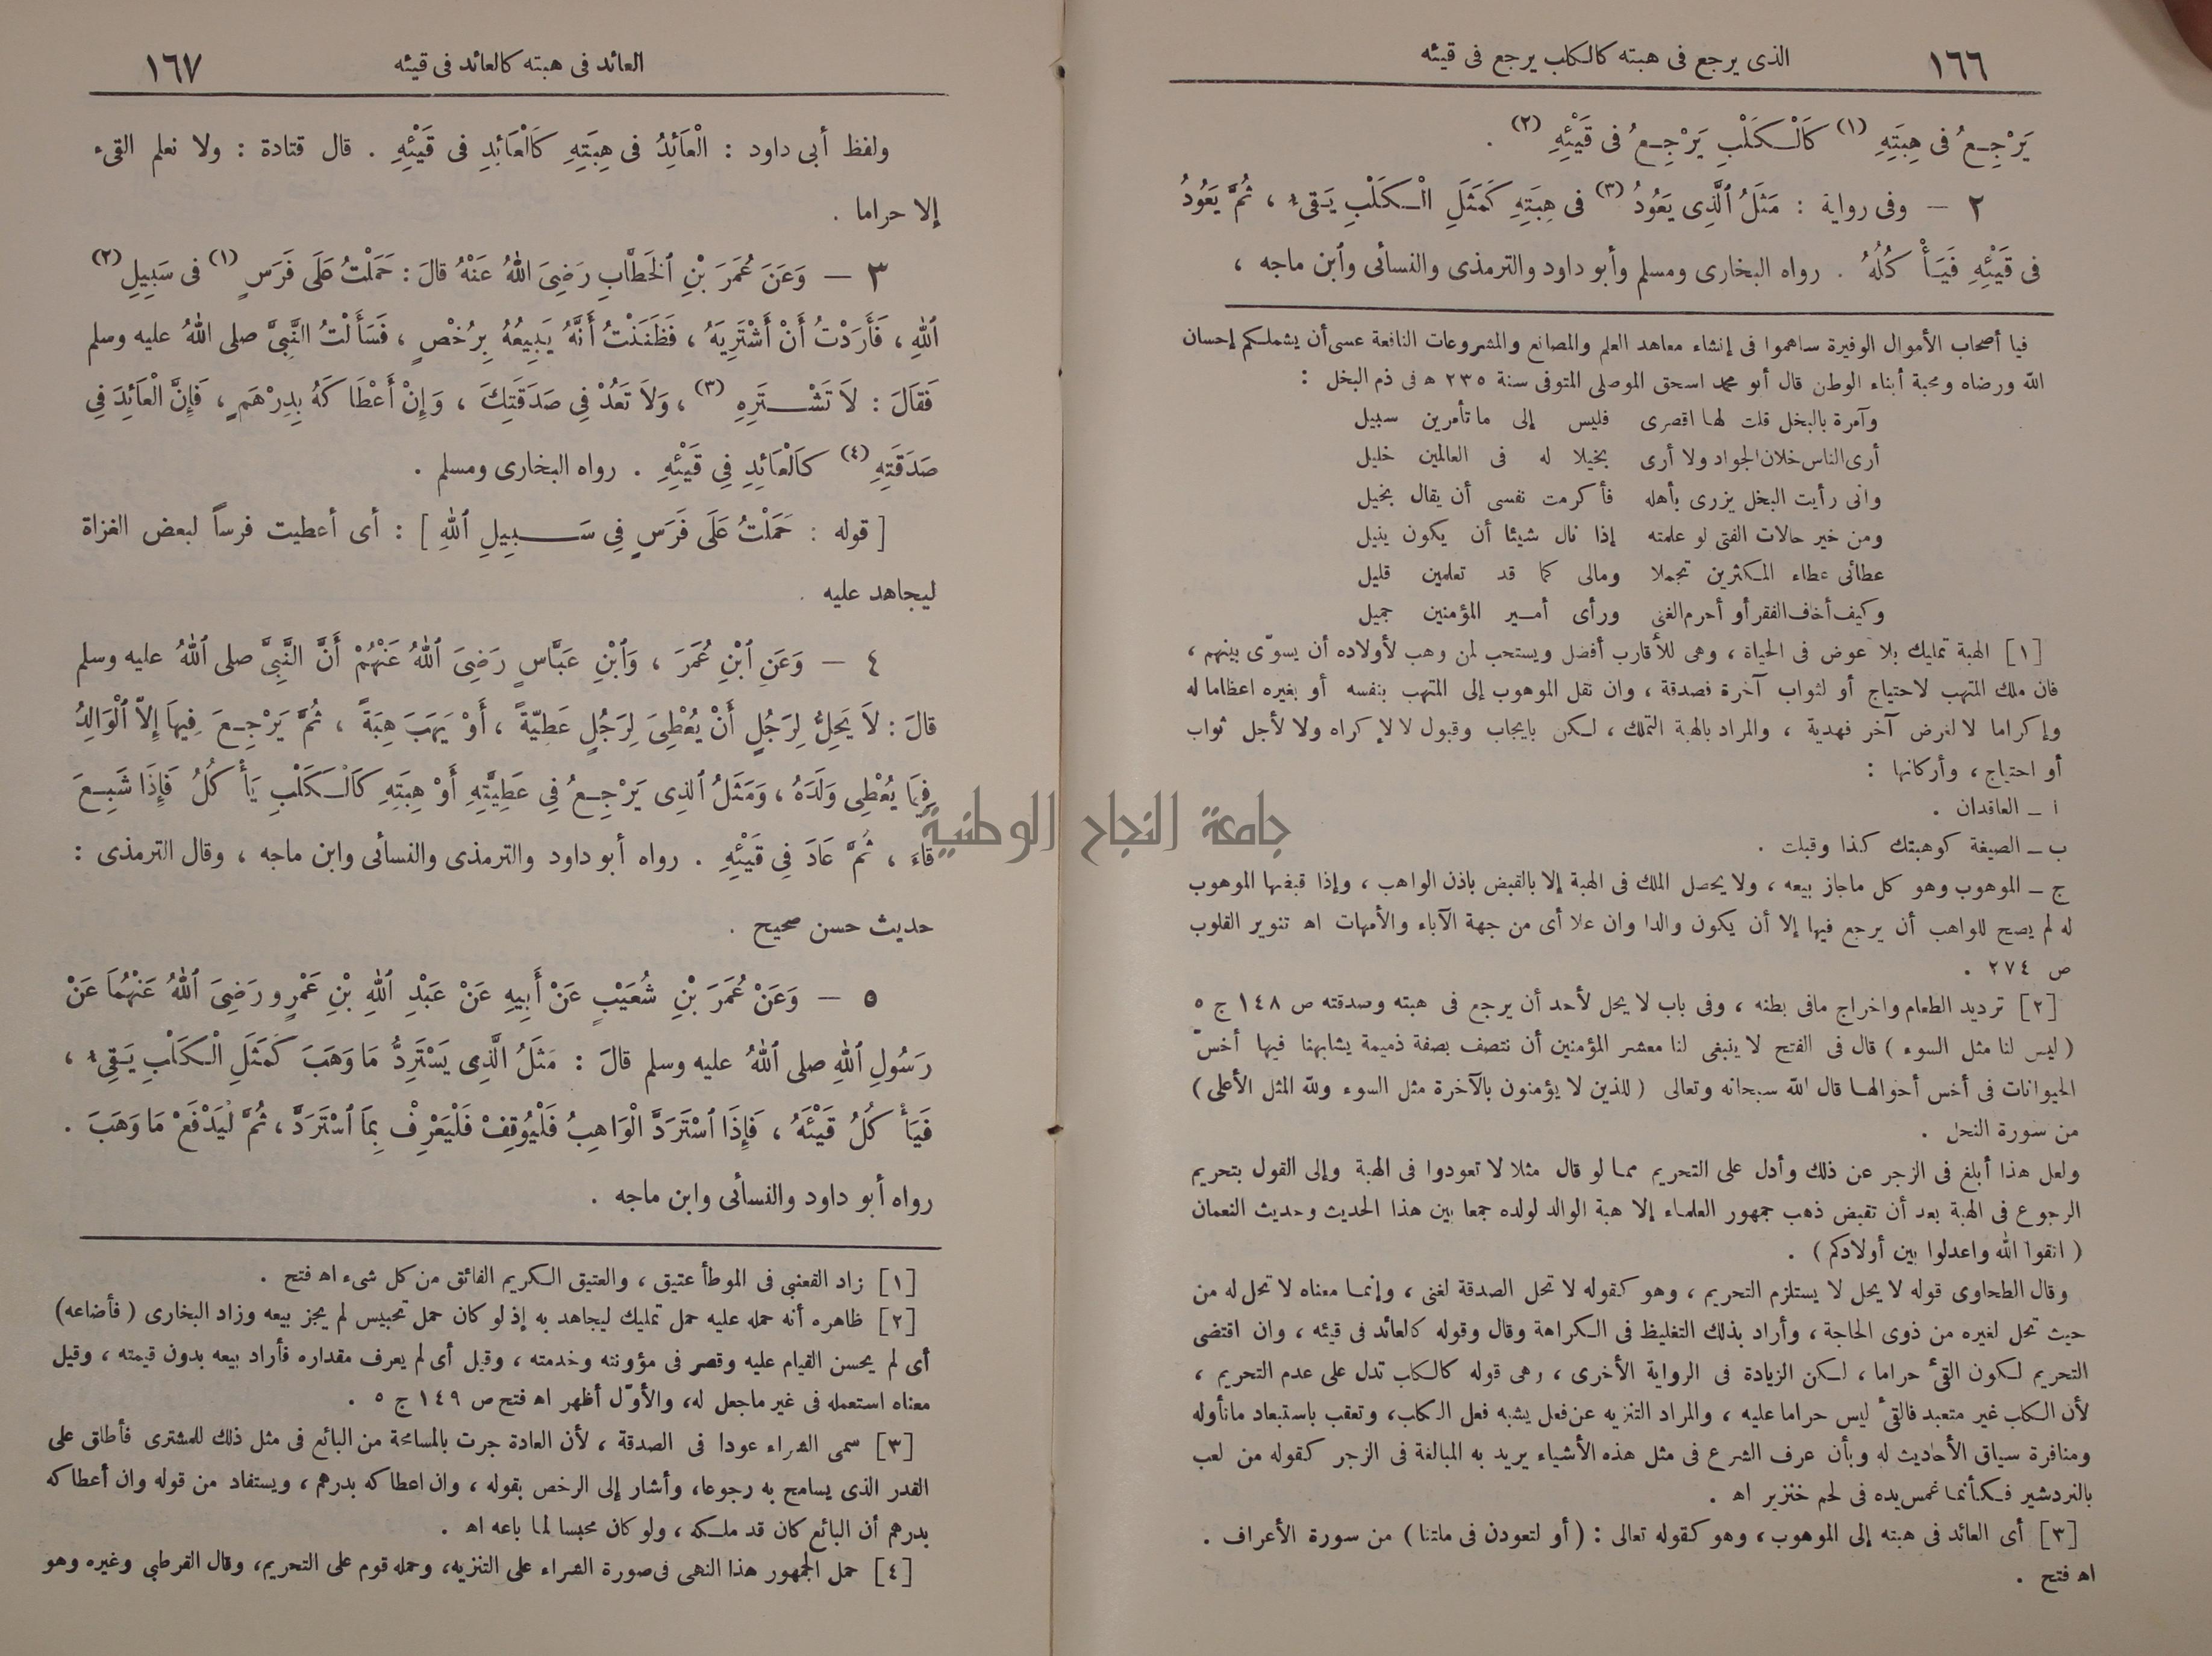 ١٦٦
الذى يرجع فى هبته كالكلب يرجع فى قيئه
يَرْجِعُ فى هِبَتِهِ (١) كَالْكَلْبِ يَرْجِعُ فى قَيْئِهِ (٢) .
٢ — وفى رواية : مَثَلُ ٱلَّذِى يَعُودُ (٣) فى هِبَتِهِ كَمَثَلِ الْكَلْبِ يَقىء ، ثُمَّ يَعُودُ
فى قَيْئِهِ فَيَأْكُلُهُ . رواه البخارى ومسلم وأبو داود والترمذى والنسائى وٱبن ماجه ،
فيا أصحاب الأموال الوفيرة ساهموا فى إنشاء معاهد العلم والمصانع والمشروعات النافعة عسى أن يشملكم إحسان
الله ورضاه ومحبة أبناء الوطن قال أبو محمد اسحق الموصلى المتوفى سنة ٢٣٥ ه فى ذم البخل :
وآمرة بالبخل قلت لها اقصرى فليس إلى ما تأمرين سبيل
أرى الناس خلان الجواد ولا أرى بخيلا له فى العالمين خليل
وانى رأيت البخل يزرى بأهله فأكرمت نفسى أن يقال بخيل
ومن خير حالات الفتى لو علمته إذا نال شيئا أن يكون ينيل
عطائى عطاء المكثرين تجملا ومالى كما قد تعلمين قليل
وكيف أخاف الفقر أو أحرم الغنى ورأى أمير المؤمنين جميل
[١] الهبة تمليك بلا عوض فى الحياة ، وهى للأقارب أفضل ويستحب لمن وهب لأولاده أن يسوّى بينهم ،
فان ملك المتهب لاحتياج أو لثواب آخرة فصدقة ، وان نقل الموهوب إلى المتهب بنفسه أو بغيره اعظاما له
وإكراما لا لغرض آخر فهدية ، والمراد بالهبة التملك ، لكن بايجاب وقبول لا لإكراه ولا لأجل ثواب
أو احتياج ، وأركانها :
ا ـ العاقدان .
ب ـ الصيغة كوهبتك كذا وقبلت .
ج ـ الموهوب وهو كل ماجاز بيعه ، ولا يحصل الملك فى الهبة إلا بالقبض باذن الواهب ، وإذا قبضها الموهوب
له لم يصح للواهب أن يرجع فيها إلا أن يكون والدا وان علا أى من جهة الآباء والأمهات اه تنوير القلوب
ص ٢٧٤ .
[٢] ترديد الطعام واخراج مافى بطنه ، وفى باب لا يحل لأحد أن يرجع فى هبته وصدقته ص ١٤٨ ج ٥
( ليس لنا مثل السوء ) قال فى الفتح لا ينبغى لنا معشر المؤمنين أن نتصف بصفة ذميمة يشابهنا فيها أخسّ
الحيوانات فى أخس أحوالها قال الله سبحانه وتعالى ( للذين لا يؤمنون بالآخرة مثل السوء ولله المثل الأعلى )
من سورة النحل .
ولعل هذا أبلغ فى الزجر عن ذلك وأدل على التحريم مما لو قال مثلا لا تعودوا فى الهبة وإلى القول بتحريم
الرجوع فى الهبة بعد أن تقبض ذهب جمهور العلماء إلا هبة الوالد لولده جمعا بين هذا الحديث وحديث النعمان
( اتقوا الله واعدلوا بين أولادكم ) .
وقال الطحاوى قوله لا يحل لا يستلزم التحريم ، وهو كقوله لا تحل الصدقة لغنى ، وإنما معناه لا تحل له من
حيث تحل لغيره من ذوى الحاجة ، وأراد بذلك التغليظ فى الكراهة وقال وقوله كالعائد فى قيئه ، وان اقتضى
التحريم لكون القئ حراما ، لكن الزيادة فى الرواية الأخرى ، وهى قوله كالكلب تدل على عدم التحريم ،
لأن الكلب غير متعبد فالقئ ليس حراما عليه ، والمراد التنزيه عن فعل يشبه فعل الكلب ، وتعقب باستبعاد ماتأوله
ومنافرة سياق الأحاديث له وبأن عرف الشرع فى مثل هذه الأشياء يريد به المبالغة فى الزجر كقوله من لعب
بالنردشير فكأنما غمس يده فى لحم خنزير اه .
[٣] أى العائد فى هبته إلى الموهوب ، وهو كقوله تعالى : ( أو لتعودن فى ملتنا ) من سورة الأعراف .
اه فتح .
١٦٧
العائد فى هبته كالعائد فى قيئه
ولفظ أبى داود : الْعَائِدُ فى هِبَتِهِ كَالْعَائِدِ فى قَيْئِهِ . قال قتادة : ولا نعلم القىء
إلا حراما .
٣ — وَعَنَ عُمَرَ بْنِ ٱلْخَطَّابِ رَضِىَ اللهُ عَنْهُ قالَ : حَمَلْتُ عَلَى فَرَسٍ (١) فى سَبِيلِ (٢)
ٱللهِ ، فَأَرَدْتُ أَنْ أَشْتَرِيَهُ ، فَظَنَنْتُ أَنَّهُ يَبِيعُهُ بِرُخْصٍ ، فَسَأَلْتُ النَّبِىَّ صلى اللهُ عليه وسلم
فَقَالَ : لاَ تَشْتَرِهِ (٣) ، وَلاَ تَعُدْ فِي صَدَقَتِكَ ، وَإِنْ أَعْطَاكَهُ بِدِرْهَمٍ ، فَإِنَّ الْعَائِدَ فِي
صَدَقَتِهِ (٤) كَالْعَائِدِ فِي قَيْئِهِ . رواه البخارى ومسلم .
[ قوله : حَمَلْتُ عَلَى فَرَسٍ فِي سَبِيلِ ٱللهِ ] : أى أعطيت فرساً لبعض الغزاة
ليجاهد عليه .
٤ — وَعَنِ ٱبْنِ عُمَرَ ، وَٱبْنِ عَبَّاسٍ رَضِىَ ٱللهُ عَنْهُمْ أَنَّ النَّبِىَّ صلى ٱللهُ عليه وسلم
قالَ : لاَ يَحِلُّ لِرَجُلٍ أَنْ يُعْطِىَ لِرَجُلٍ عَطِيّةً ، أَوْ يَهَبَ هِبَةً ، ثُمَّ يَرْجِعَ فِيهَا إِلاَّ ٱلْوَالِدُ
فِيمَا يُعْطِى وَلَدَهُ ، وَمَثَلُ ٱلذِى يَرْجِعُ فِي عَطِيَّتِهِ أَوْ هِبَتِهِ كَالْكَلْبِ يَأْكُلُ فَإِذَا شَبِعَ
قَاءَ ، ثُمَّ عَادَ فِي قَيْئِهِ . رواه أبو داود والترمذى والنسائى وابن ماجه ، وقال الترمذى :
حديث حسن صحيح .
٥ — وَعَنْ عُمَرَ بْنِ شُعَيْبٍ عَنْ أَبِيهِ عَنْ عَبْدِ ٱللهِ بْنِ عَمْرٍو رَضِىَ ٱللهُ عَنْهُمَا عَنْ
رَسُولِ ٱللهِ صلى اللهُ عليه وسلم قالَ : مَثَلُ الَّذِى يَسْتَرِدُّ مَا وَهَبَ كَمَثَلِ الْكَلْبِ يَقِىء ،
فَيَأْكُلُ قَيْئَهُ ، فَإِذَا ٱسْتَرَدَّ الْوَاهِبُ فَلْيُوقِفْ فَلْيَعْرِفْ بِمَا ٱسْتَرَدَّ ، ثُمَّ لْيَدْفَعْ مَا وَهَبَ .
رواه أبو داود والنسائى وابن ماجه .
[١] زاد القعنبى فى الموطأ عتيق ، والعتيق الكريم الفائق من كل شىء اه فتح .
[٢] ظاهره أنه حمله عليه حمل تمليك ليجاهد به إذ لو كان حمل تحبيس لم يجز بيعه وزاد البخارى ( فأضاعه)
أى لم يحسن القيام عليه وقصر فى مؤونته وخدمته ، وقيل أى لم يعرف مقداره فأراد بيعه بدون قيمته ، وقيل
معناه استعمله فى غير ماجعل له، والأوّل أظهر اه فتح ص ١٤٩ ج ٥ .
[٣] سمى الشراء عودا فى الصدقة ، لأن العادة جرت بالمسامحة من البائع فى مثل ذلك للمشترى فأطلق على
القدر الذى يسامح به رجوعا، وأشار إلى الرخص بقوله ، وان اعطاكه بدرهم ، ويستفاد من قوله وان أعطاكه
بدرهم أن البائع كان قد ملكه ، ولو كان محبسا لما باعه اه .
[٤] حمل الجمهور هذا النهى فى صورة الشراء على التنزيه، وحمله قوم على التحريم، وقال القرطبى وغيره وهو
جامعة النجاح الوطنية